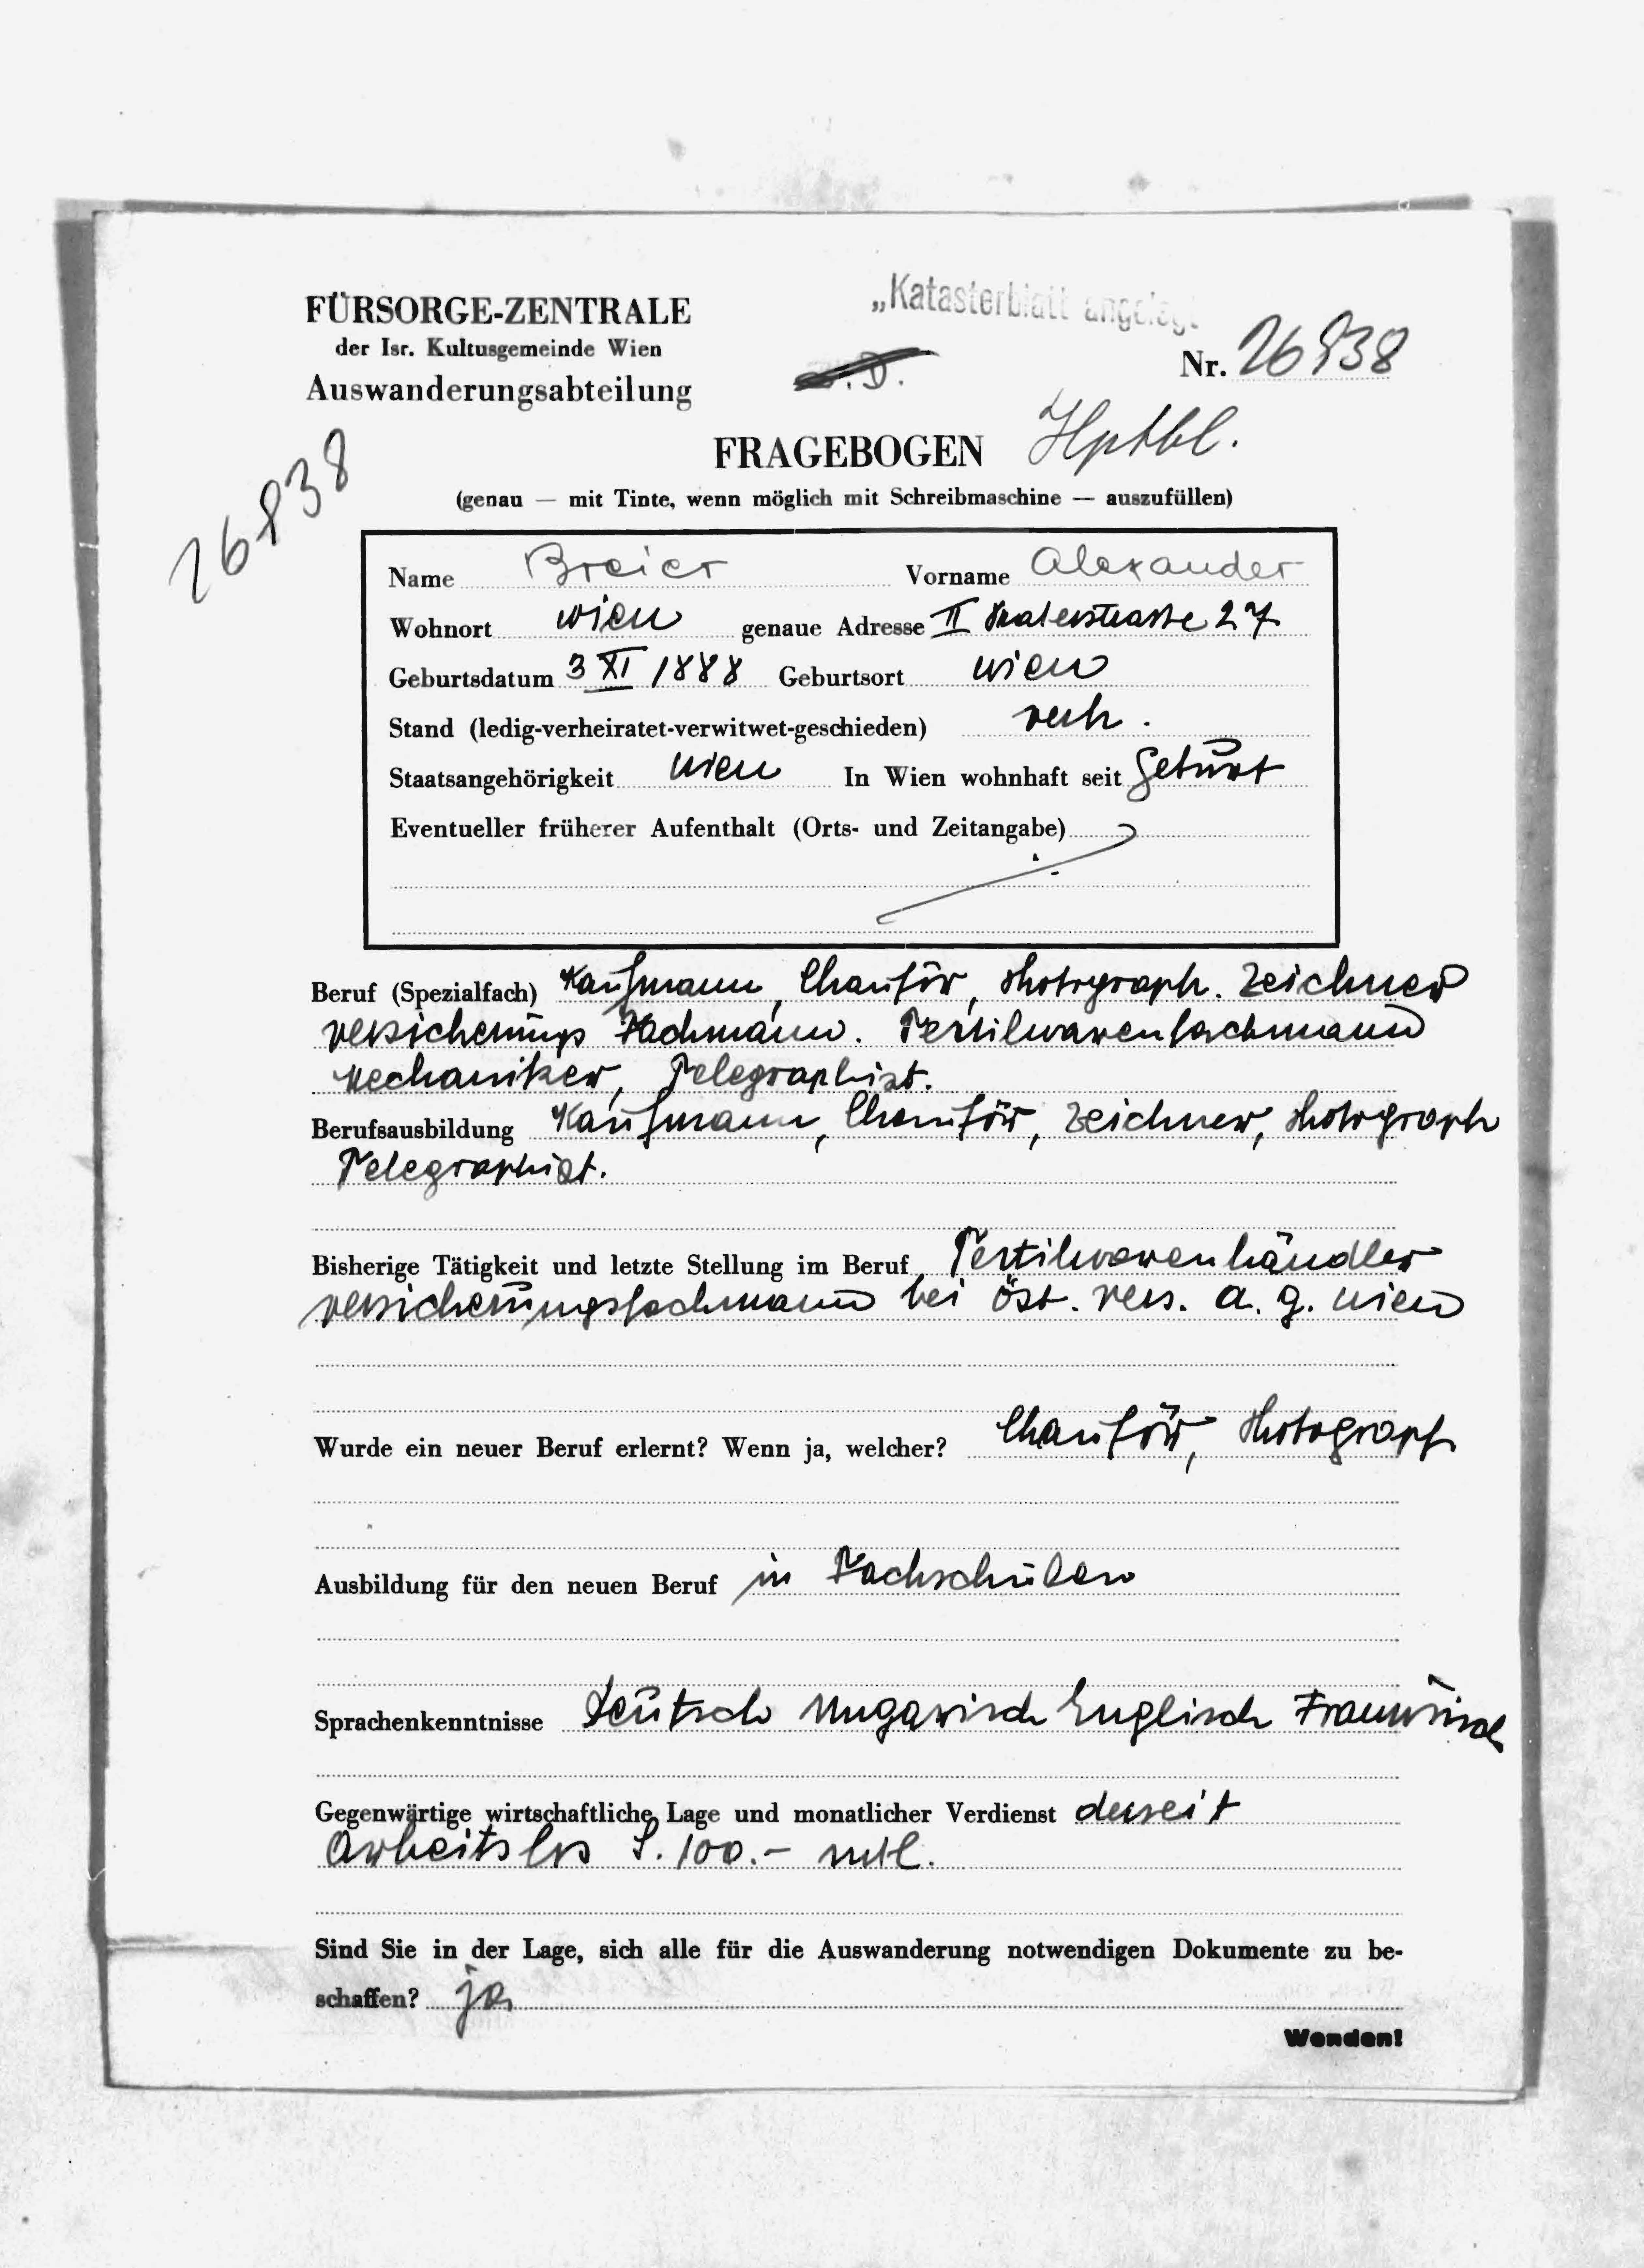 FÜRSORGE-ZENTRALE
der Isr. Kultusgemeinde Wien
Auswanderungsabteilung
„Katasterblatt angelegt
D.
Nr. 26838
26838
FRAGEBOGEN Hptbl.
(genau — mit Tinte, wenn möglich mit Schreibmaschine — auszufüllen)
Name Breier Vorname Alexander
Wohnort Wien genaue Adresse II Praterstrasse 27
Geburtsdatum 3 XI 1888 Geburtsort Wien
Stand (ledig-verheiratet-verwitwet-geschieden) verh.
Staatsangehörigkeit Wien In Wien wohnhaft seit Geburt
Eventueller früherer Aufenthalt (Orts- und Zeitangabe)
Beruf (Spezialfach) Kaufmann, Chauför, Photograph. Zeichner
Versicherungs Fachmann. Textilwarenfachmann
Mechaniker, Telegraphist.
Berufsausbildung Kaufmann, Chauför, Zeichner, Photograph
Telegraphist.
Bisherige Tätigkeit und letzte Stellung im Beruf Textilwarenhändler
Versicherungsfachmann bei Öst. Vers. A. G. Wien
Wurde ein neuer Beruf erlernt? Wenn ja, welcher? Chauför, Photograph
Ausbildung für den neuen Beruf in Fachschulen
Sprachenkenntnisse Deutsch Ungarisch Englisch Französisch
Gegenwärtige wirtschaftliche Lage und monatlicher Verdienst derzeit
Arbeitslos S. 100.- mtl.
Sind Sie in der Lage, sich alle für die Auswanderung notwendigen Dokumente zu be-
schaffen? ja
Wenden!